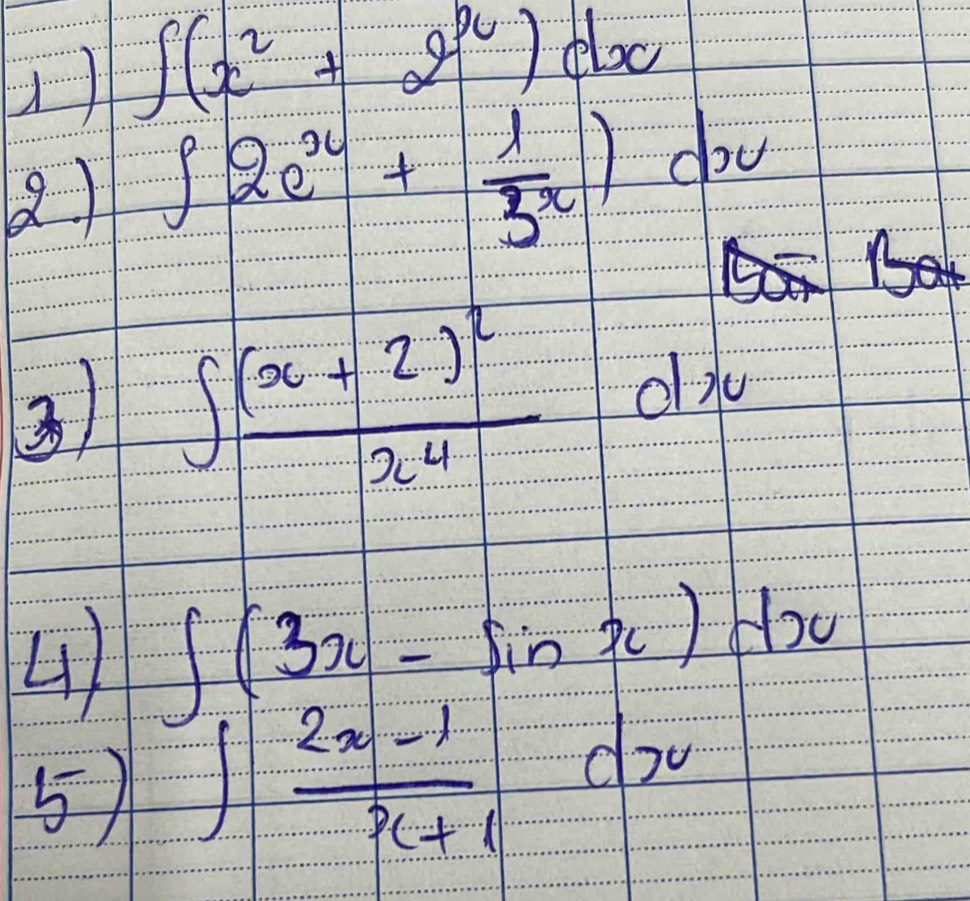 1) ∫(x² + 2ˣ) dx
2.) ∫ 2eˣ + 1/3ˣ) dx
3) ∫ (x + 2)²/x⁴ dx
4) ∫(3x - sin x) dx
5) ∫ 2x - 1/x + 1 dx